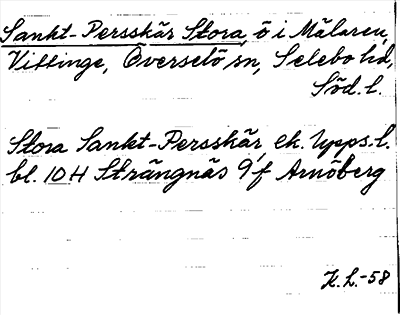 Sankt-Persskär Stora, ö i Mälaren,
Vittinge, Överselö sn, Selebo hd,
Söd. l.
Stora Sankt-Persskär, ek. Upps. l.
bl. 10H Strängnäs 9f Arnöberg
K. L. -58